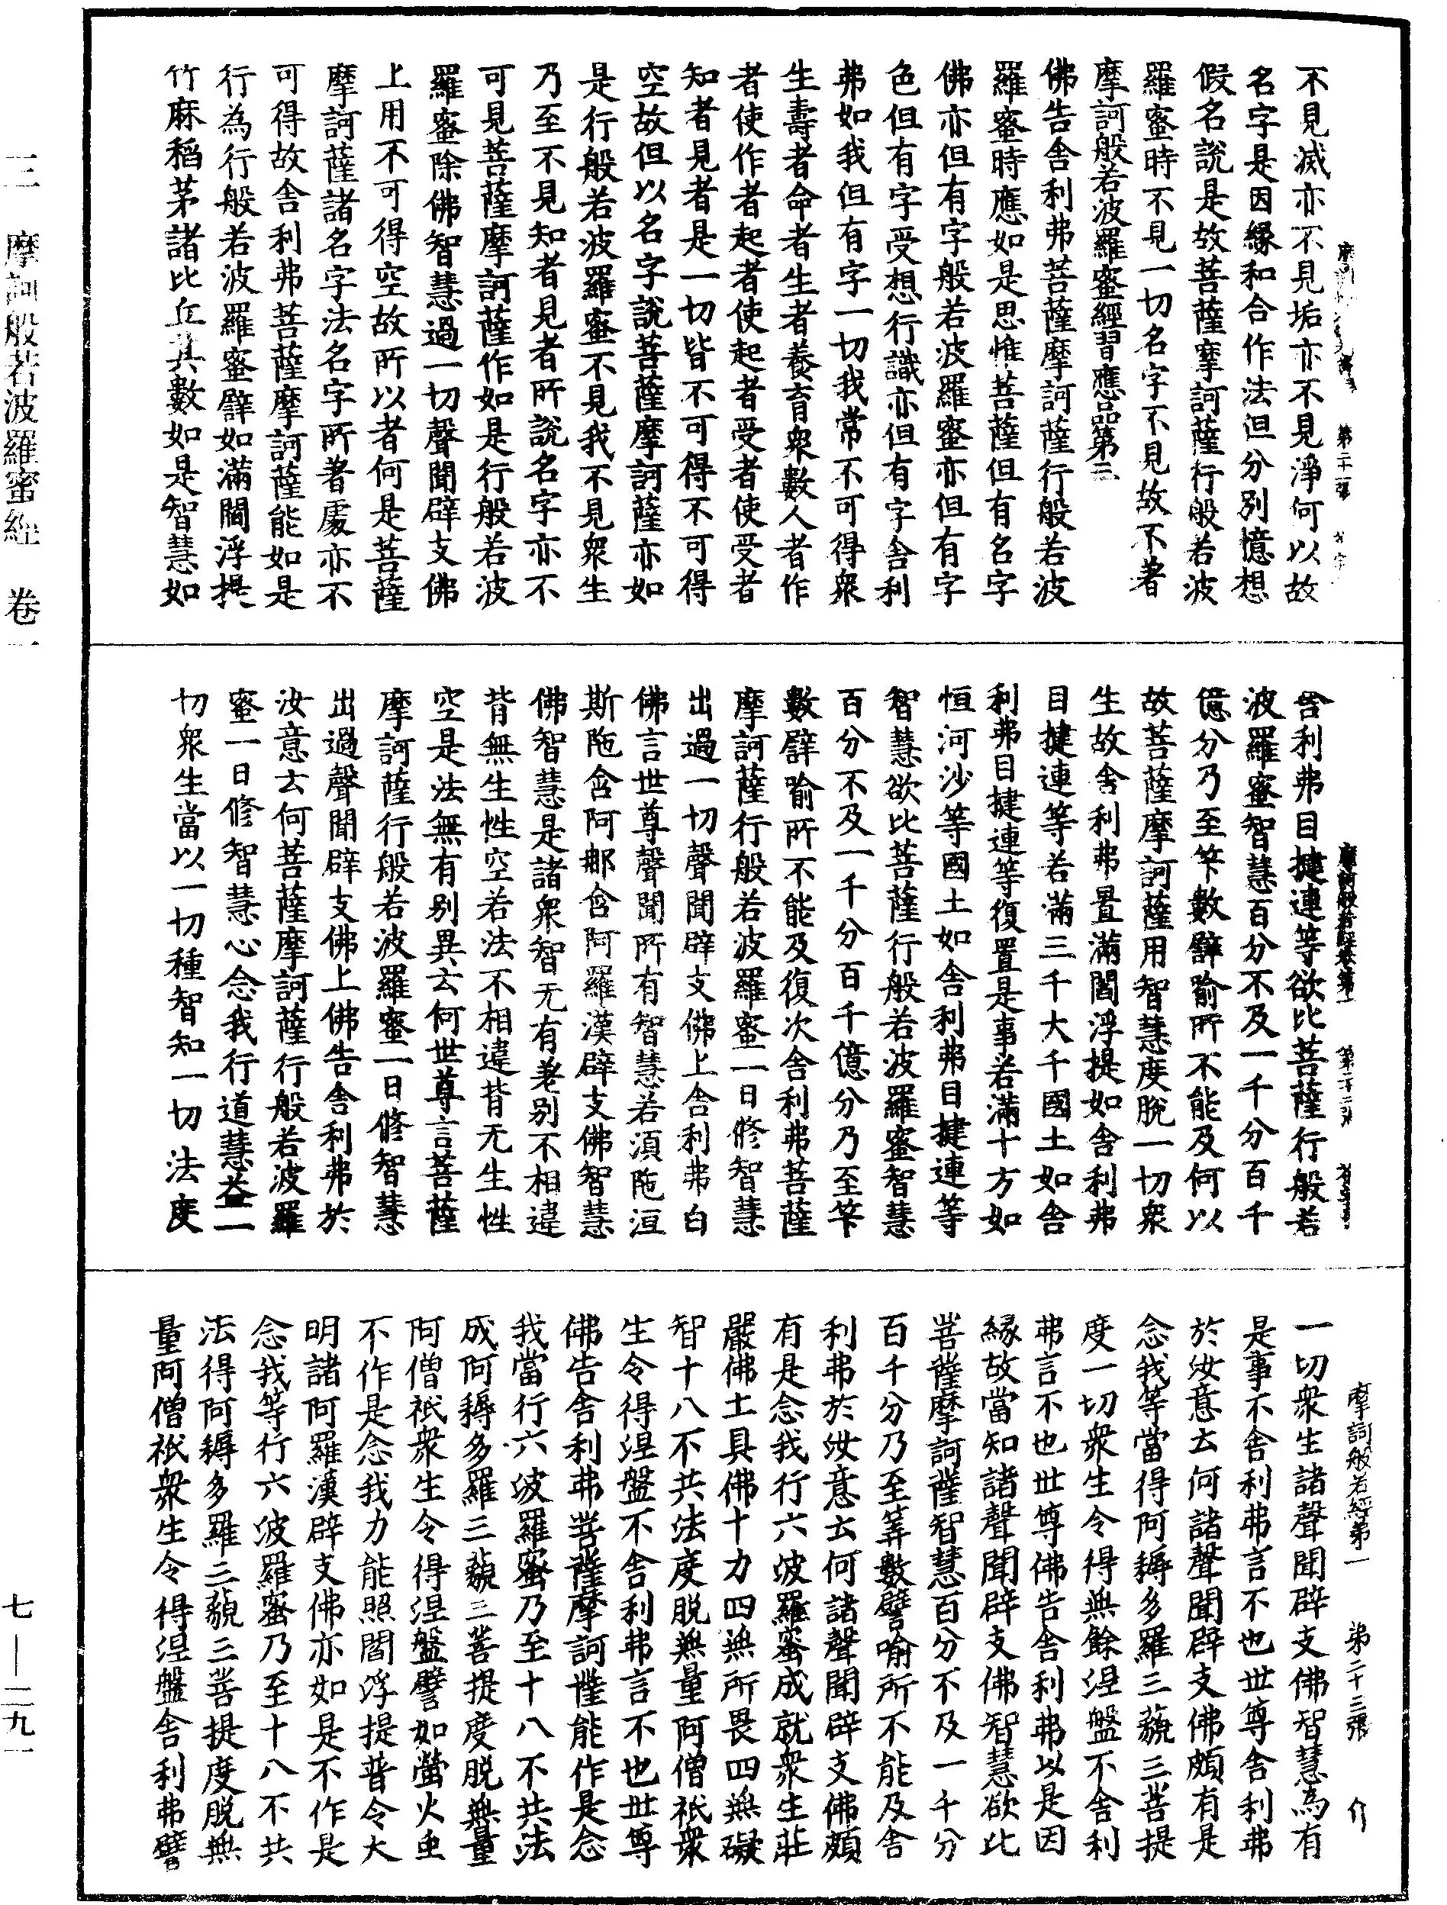 不見滅亦不見垢亦不見淨何以故
名字是因緣和合作法但分別憶想
假名說是故菩薩摩訶薩行般若波
羅蜜時不見一切名字不見故不著
摩訶般若波羅蜜經習應品第三
佛告舍利弗菩薩摩訶薩行般若波
羅蜜時應如是思惟菩薩但有名字
佛亦但有字般若波羅蜜亦但有字
色但有字受想行識亦但有字舍利
弗如我但有字一切我常不可得衆
生壽者命者生者養育衆數人者作
者使作者起者使起者受者使受者
知者見者是一切皆不可得不可得
空故但以名字說菩薩摩訶薩亦如
是行般若波羅蜜不見我不見衆生
乃至不見知者見者所說名字亦不
可見菩薩摩訶薩作如是行般若波
羅蜜除佛智慧過一切聲聞辟支佛
上用不可得空故所以者何是菩薩
摩訶薩諸名字法名字所著處亦不
可得故舍利弗菩薩摩訶薩能如是
行為行般若波羅蜜譬如滿閻浮提
竹麻稻茅諸比丘其數如是智慧如
第二十二張
舍利弗目揵連等欲比菩薩行般若
波羅蜜智慧百分不及一千分百千
億分乃至筭數譬喻所不能及何以
故菩薩摩訶薩用智慧度脫一切衆
生故舍利弗置滿閻浮提如舍利弗
目揵連等若滿三千大千國土如舍
利弗目揵連等復置是事若滿十方如
恒河沙等國土如舍利弗目揵連等
智慧欲比菩薩行般若波羅蜜智慧
百分不及一千分百千億分乃至筭
數譬喻所不能及復次舍利弗菩薩
摩訶薩行般若波羅蜜一日修智慧
出過一切聲聞辟支佛上舍利弗白
佛言世尊聲聞所有智慧若須陁洹
斯陁含阿那含阿羅漢辟支佛智慧
佛智慧是諸衆智无有差別不相違
背無生性空若法不相違背无生性
空是法無有別異云何世尊言菩薩
摩訶薩行般若波羅蜜一日修智慧
出過聲聞辟支佛上佛告舍利弗於
汝意云何菩薩摩訶薩行般若波羅
蜜一日修智慧心念我行道慧益一
切衆生當以一切種智知一切法度
摩訶般若經第一 第二十三張 介
一切衆生諸聲聞辟支佛智慧為有
是事不舍利弗言不也世尊舍利弗
於汝意云何諸聲聞辟支佛頗有是
念我等當得阿耨多羅三藐三菩提
度一切衆生令得無餘涅盤不舍利
弗言不也世尊佛告舍利弗以是因
緣故當知諸聲聞辟支佛智慧欲比
菩薩摩訶薩智慧百分不及一千分
百千分乃至筭數譬喻所不能及舍
利弗於汝意云何諸聲聞辟支佛頗
有是念我行六波羅蜜成就衆生莊
嚴佛土具佛十力四無所畏四無礙
智十八不共法度脫無量阿僧祇衆
生令得涅盤不舍利弗言不也世尊
佛告舍利弗菩薩摩訶薩能作是念
我當行六波羅蜜乃至十八不共法
成阿耨多羅三藐三菩提度脫無量
阿僧祇衆生令得涅盤譬如螢火虫
不作是念我力能照閻浮提普令大
明諸阿羅漢辟支佛亦如是不作是
念我等行六波羅蜜乃至十八不共
法得阿耨多羅三藐三菩提度脫無
量阿僧祇衆生令得涅盤舍利弗譬
三 摩訶般若波羅蜜經 卷一
七—二九一